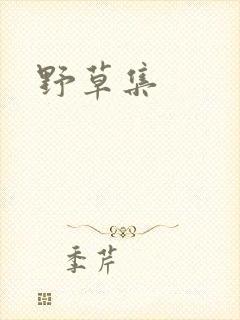 野草集
季芹